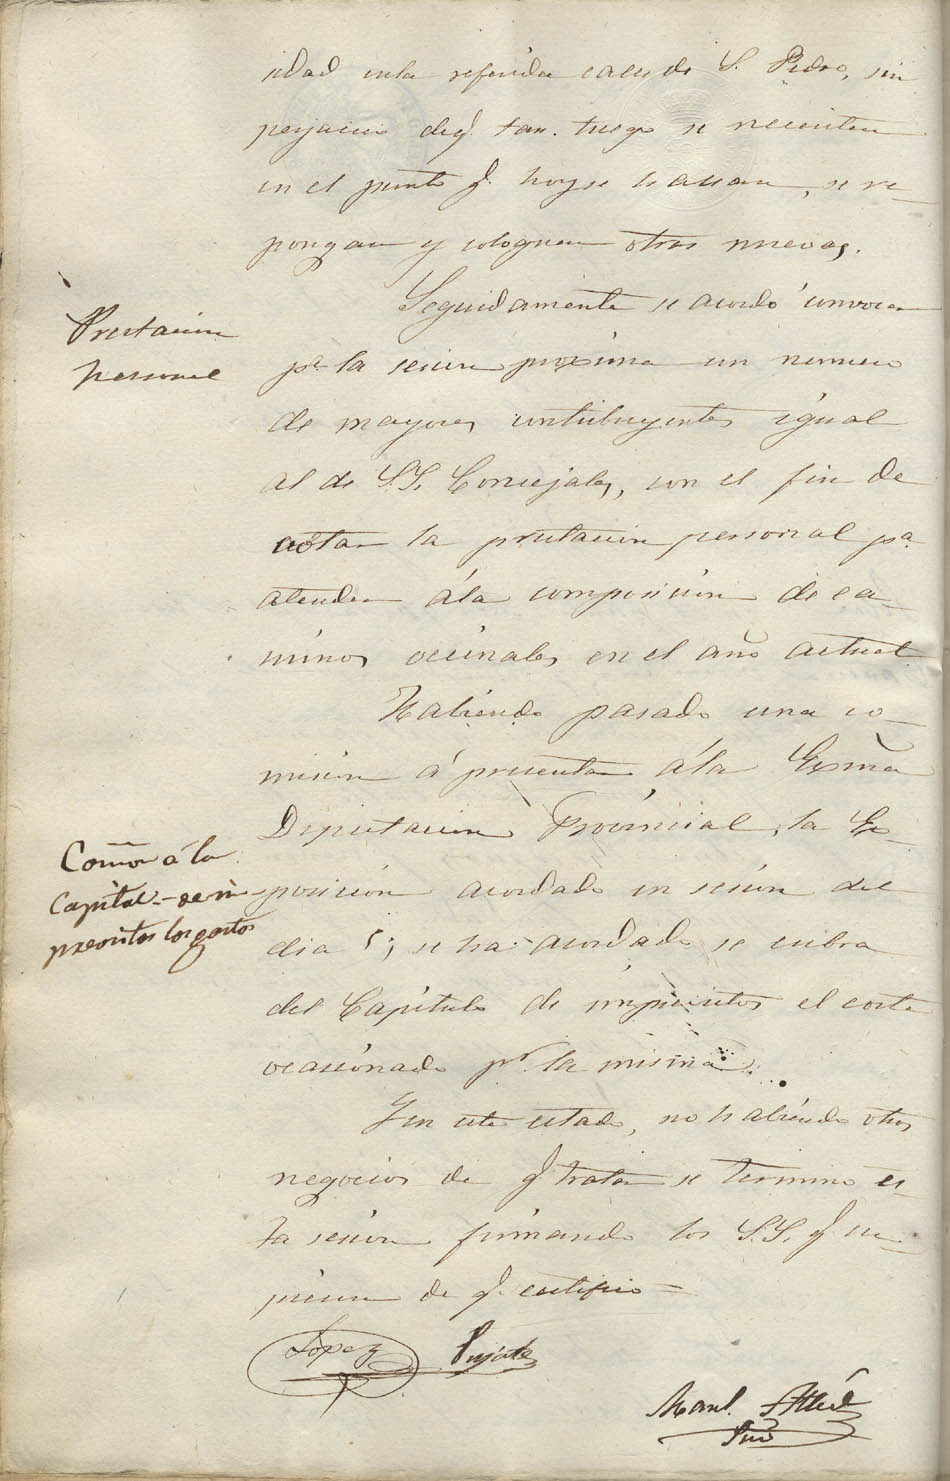 sidad en la referida calle de S. Pedro, sin
perjuicio de q. tan luego se necesiten
en el punto q. hoy se hallan, se re-
pongan y coloquen otros nuevos.
Prestacion
personal
Seguidamente se acordó convocar
pa. la sesion proxíma un numero
de mayores contribuyentes igual
al de S.S. Concejales, con el fin de
votar la prestacion personal pa.
atender á la composición de ca-
minos vecinales en el año actual
Habiendo pasado una co-
misión á presentar á la Exma
Diputacion Provincial, la Ex-
posición acordada en sesion del
dia 5; se ha acordado se cubra
del Capítulo de imprevistos el coste
ocasionado pr. la misma.
Comon á la
Capital - de im-
previstos los gastos
Y en este estado, no habiendo otros
negocios de q. tratar se terminó es-
ta sesión firmando los S.S. q. su-
pieron de q. certifico =
Lopez
Manl.
Srio